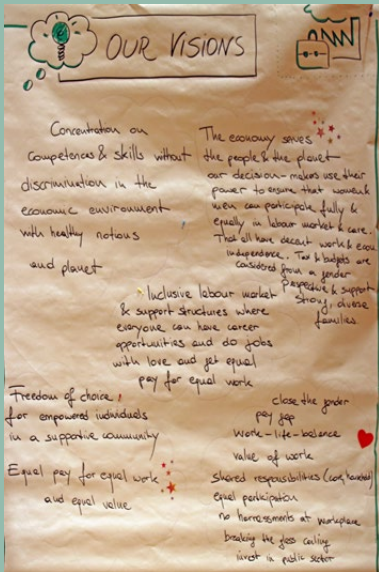 OUR VISIONS
Concentration on
competences & skills without
discrimination in the
economic environment
with healthy notions
and planet
The economy serves
the people & the planet
our decision-makers use their
power to ensure that women &
men can participate fully &
equally in labour market & care.
That all have decent work & econ.
independence. Tax & budgets are
considered from a gender
perspective & support
strong, diverse
families.
Inclusive labour market
& support structures where
everyone can have career
opportunities and do jobs
with love and get equal
pay for equal work
Freedom of choice
for empowered individuals
in a supportive community
Equal pay for equal work
and equal value
close the gender
pay gap
work-life-balance
value of work
shared responsibilities (care, household)
equal participation
no harressments at workplace
breaking the glass ceiling
invest in public sector